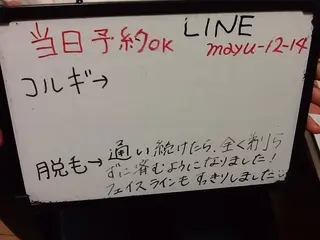 当日予約OK LINE
mayu-12-14
コルギ→
脱毛→通い続けたら、全く剃ら
ずに済むようになりました!
フェイスラインもすっきりしました